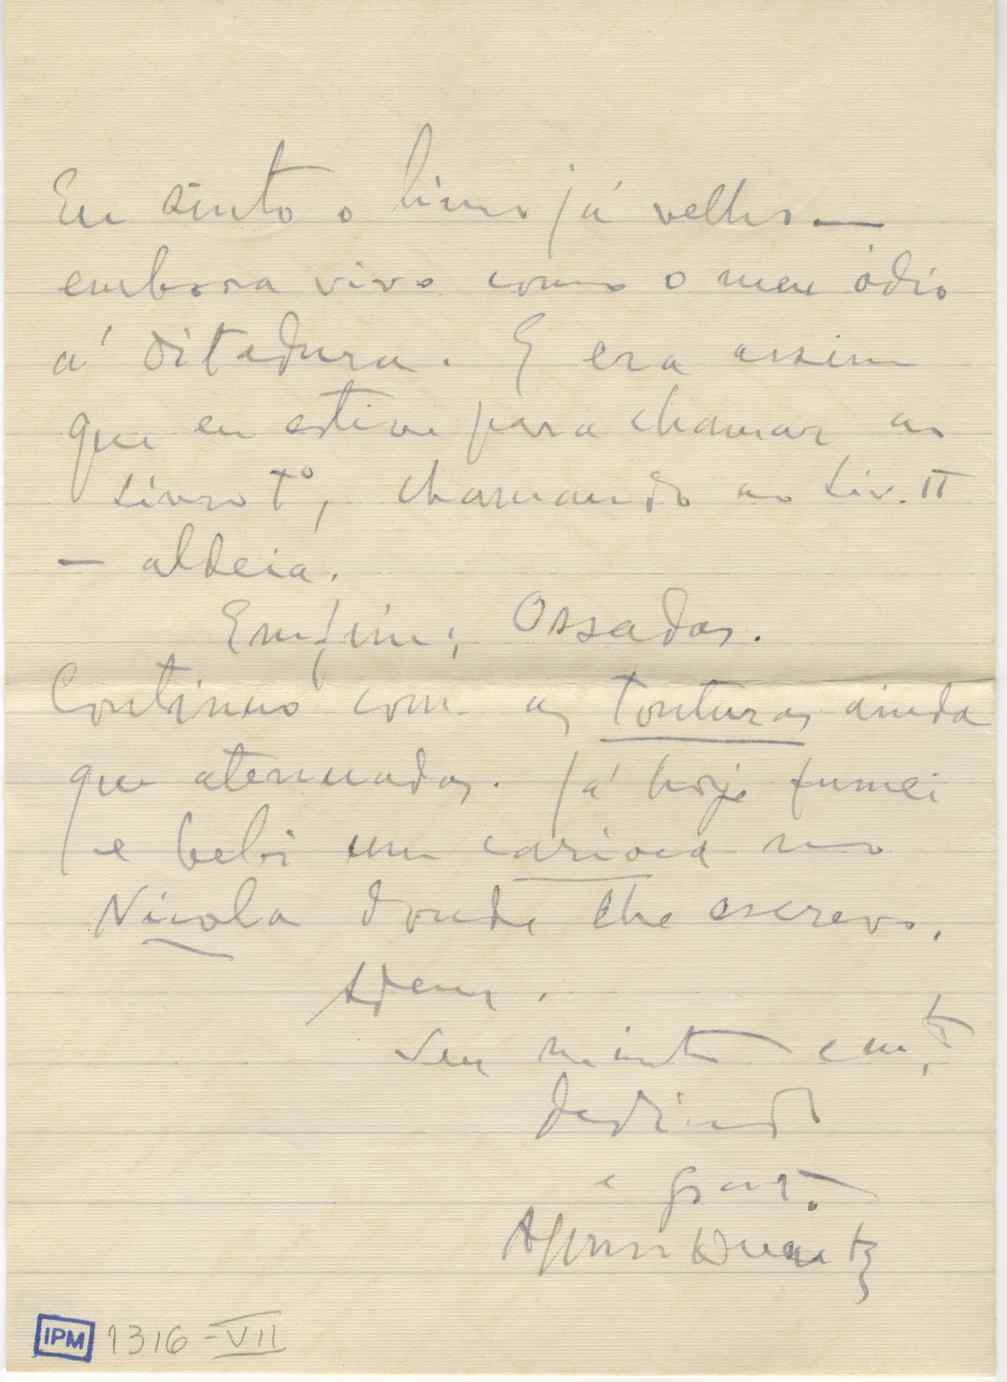 Eu sinto o livro já velho —
embora vivo como o meu ódio
á Ditadura. E era assim
que eu estive para chamar ao
Livro 1º, chamando ao Liv. II
— aldeia.
Emfim, Ossadas.
Continuo com as tonturas ainda
que atenuadas. Já hoje fumei
e bebi um carioca no
Nicola donde lhe escrevo.
Adeus.
Seu muito
dedicado
e grat.
Afonso Duarte
IPM 1316-VII